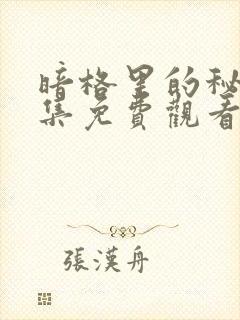 暗格里的秘
集免費觀看
張漢舟